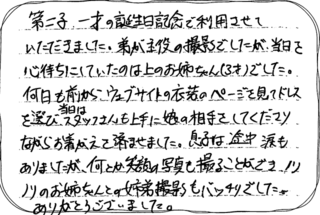 第二子 一才の誕生日記念で利用させて
いただきました。弟が主役の撮影でしたが、当日を
心待ちにしていたのは上のお姉ちゃん(3才)でした。
何日も前からウェブサイトの衣装のページを見てドレス
を選び、当日はスタッフさんも上手に娘の相手をしてくださり
ながらお着がえて済ませました。息子は途中涙も
ありましたが、何とか笑顔の写真も撮ることができ、ノリ
ノリのお姉ちゃんとの姉弟撮影もバッチリでした。
ありがとうございました。